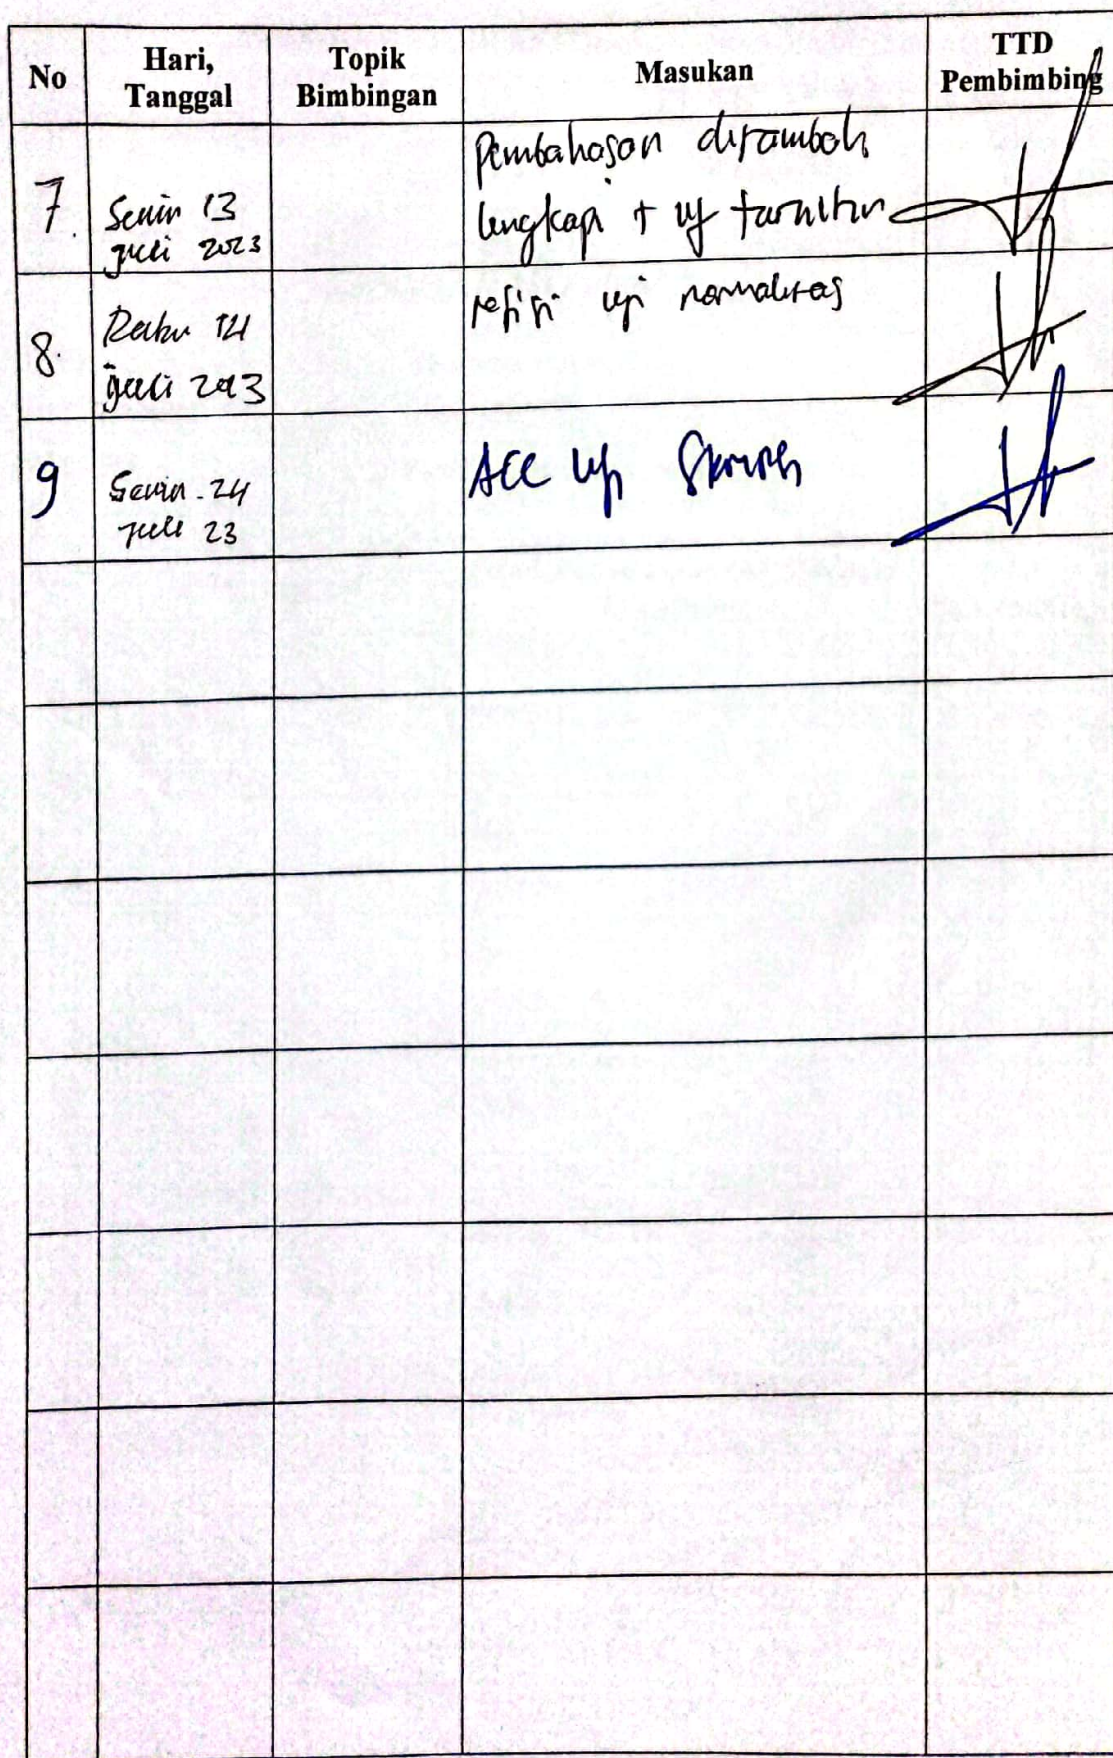 No
Hari,
Tanggal
Topik
Bimbingan
Masukan
TTD
Pembimbing
7.
Senin 13
Juli 2023
Pembahasan ditambah
lengkapi + uji turnitin
8.
Rabu
Juli 2023
refisi uji normalitas
9
Senin-24
Juli 23
ACC uji